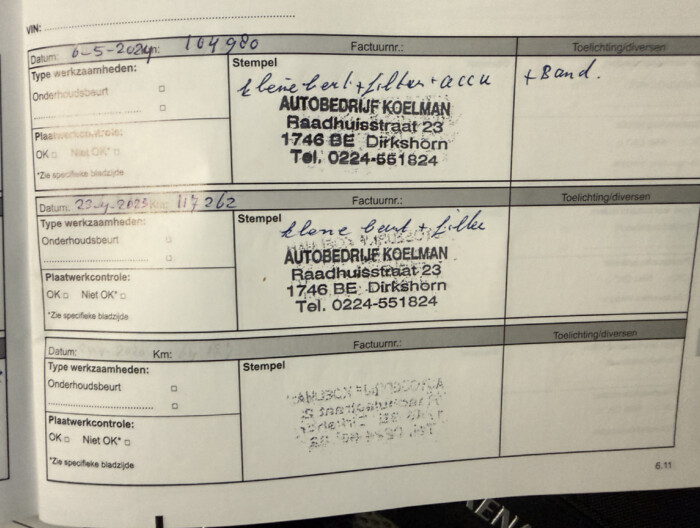 VIN:
Datum: 6-5-2024 Km: 104980 Factuurnr.: Toelichting/diversen
Type werkzaamheden:
Onderhoudsbeurt
Plaatwerkcontrole:
OK Niet OK*
*Zie specifieke bladzijde
Stempel
kleine beurt + filter + accu
+ Band.
AUTOBEDRIJF KOELMAN
Raadhuisstraat 23
1746 BE Dirkshorn
Tel. 0224-551824
Datum: Km: 117262 Toelichting/diversen
Type werkzaamheden:
Onderhoudsbeurt
Plaatwerkcontrole:
OK Niet OK*
*Zie specifieke bladzijde
Stempel
kleine beurt + filter
AUTOBEDRIJF KOELMAN
Raadhuisstraat 23
1746 BE Dirkshorn
Tel. 0224-551824
Datum: Km: Factuurnr.: Toelichting/diversen
Type werkzaamheden:
Onderhoudsbeurt
Plaatwerkcontrole:
OK Niet OK*
*Zie specifieke bladzijde
Stempel
6.11